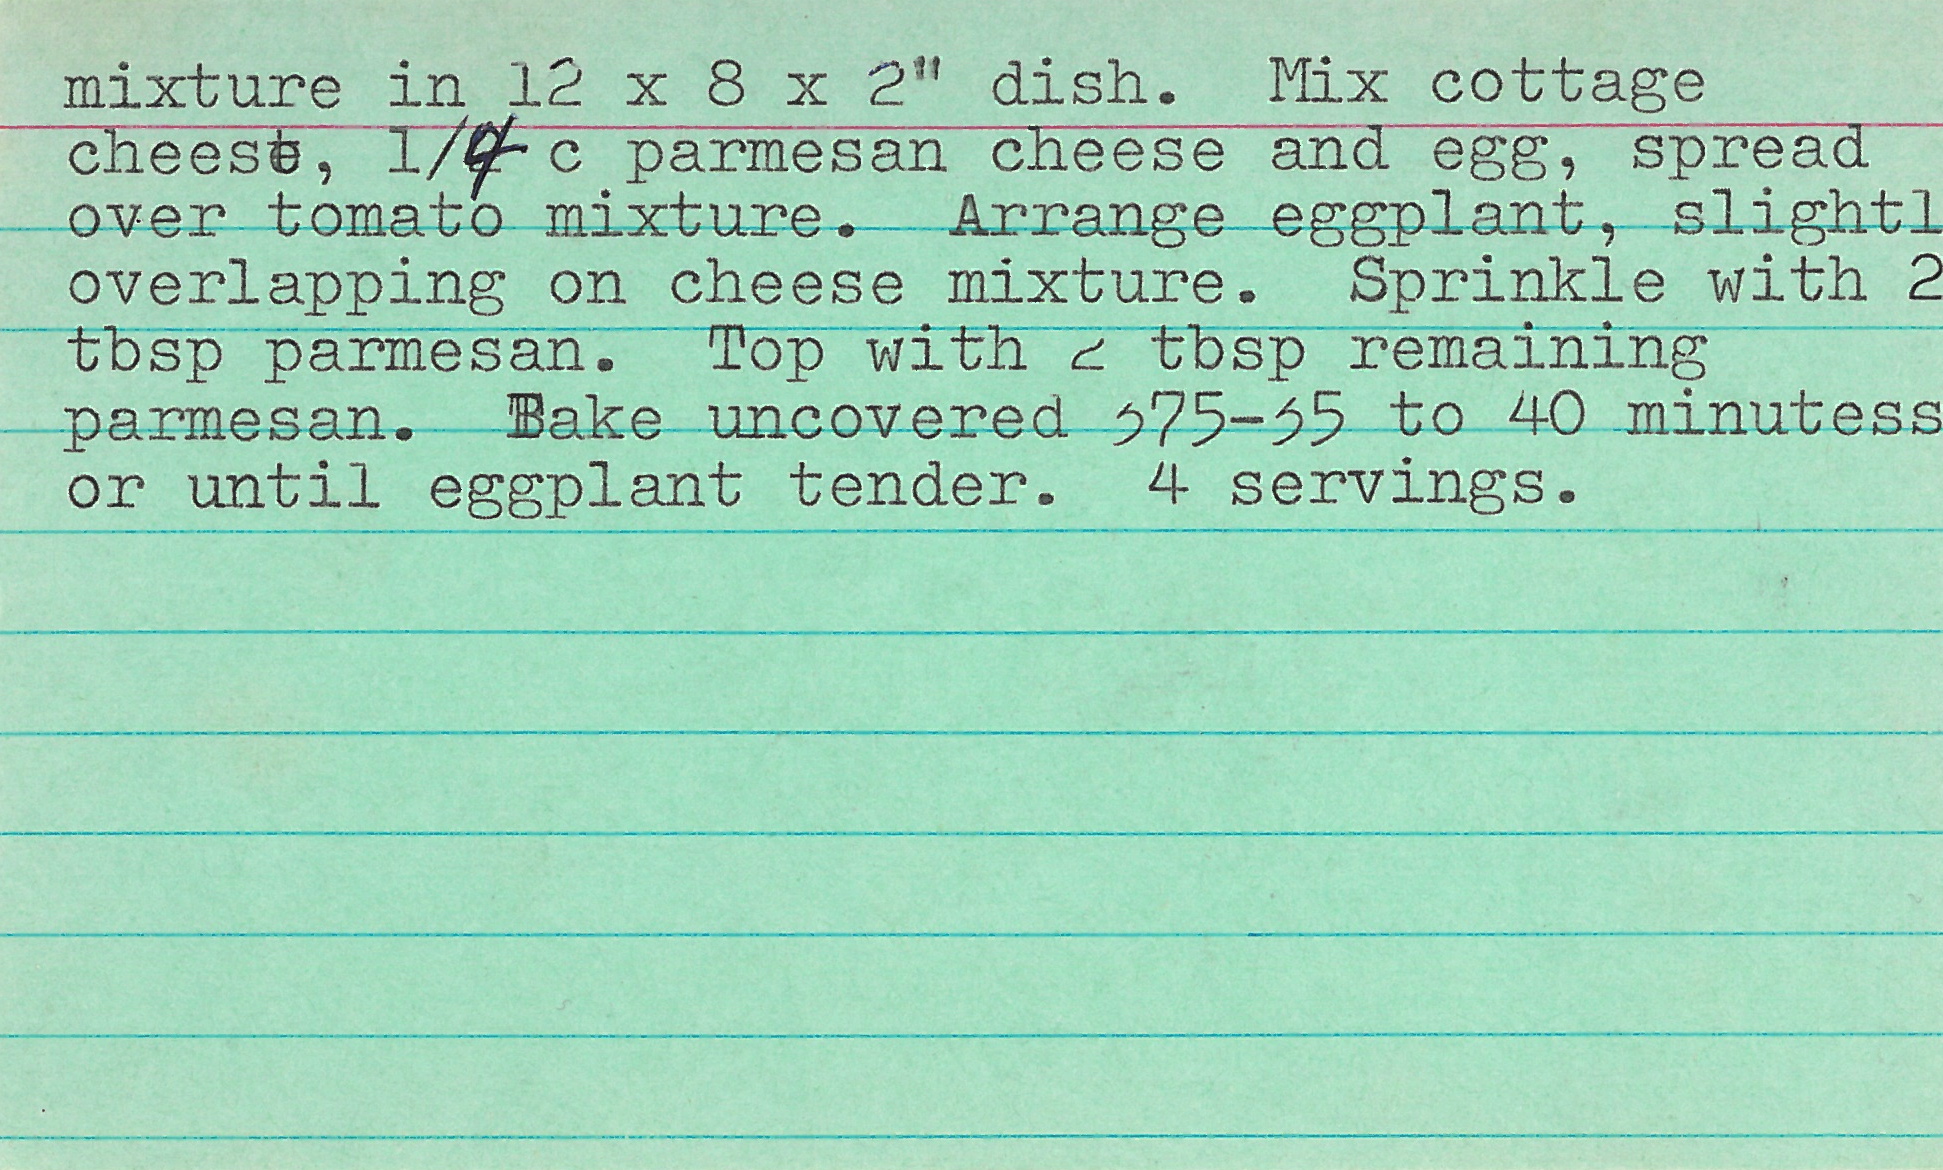 mixture in 12 x 8 x 2" dish.  Mix cottage
cheese, 1/4 c parmesan cheese and egg, spread
over tomato mixture.  Arrange eggplant, slightl
overlapping on cheese mixture.  Sprinkle with 2
tbsp parmesan.  Top with 2 tbsp remaining
parmesan.  Bake uncovered 375-35 to 40 minutess
or until eggplant tender.  4 servings.